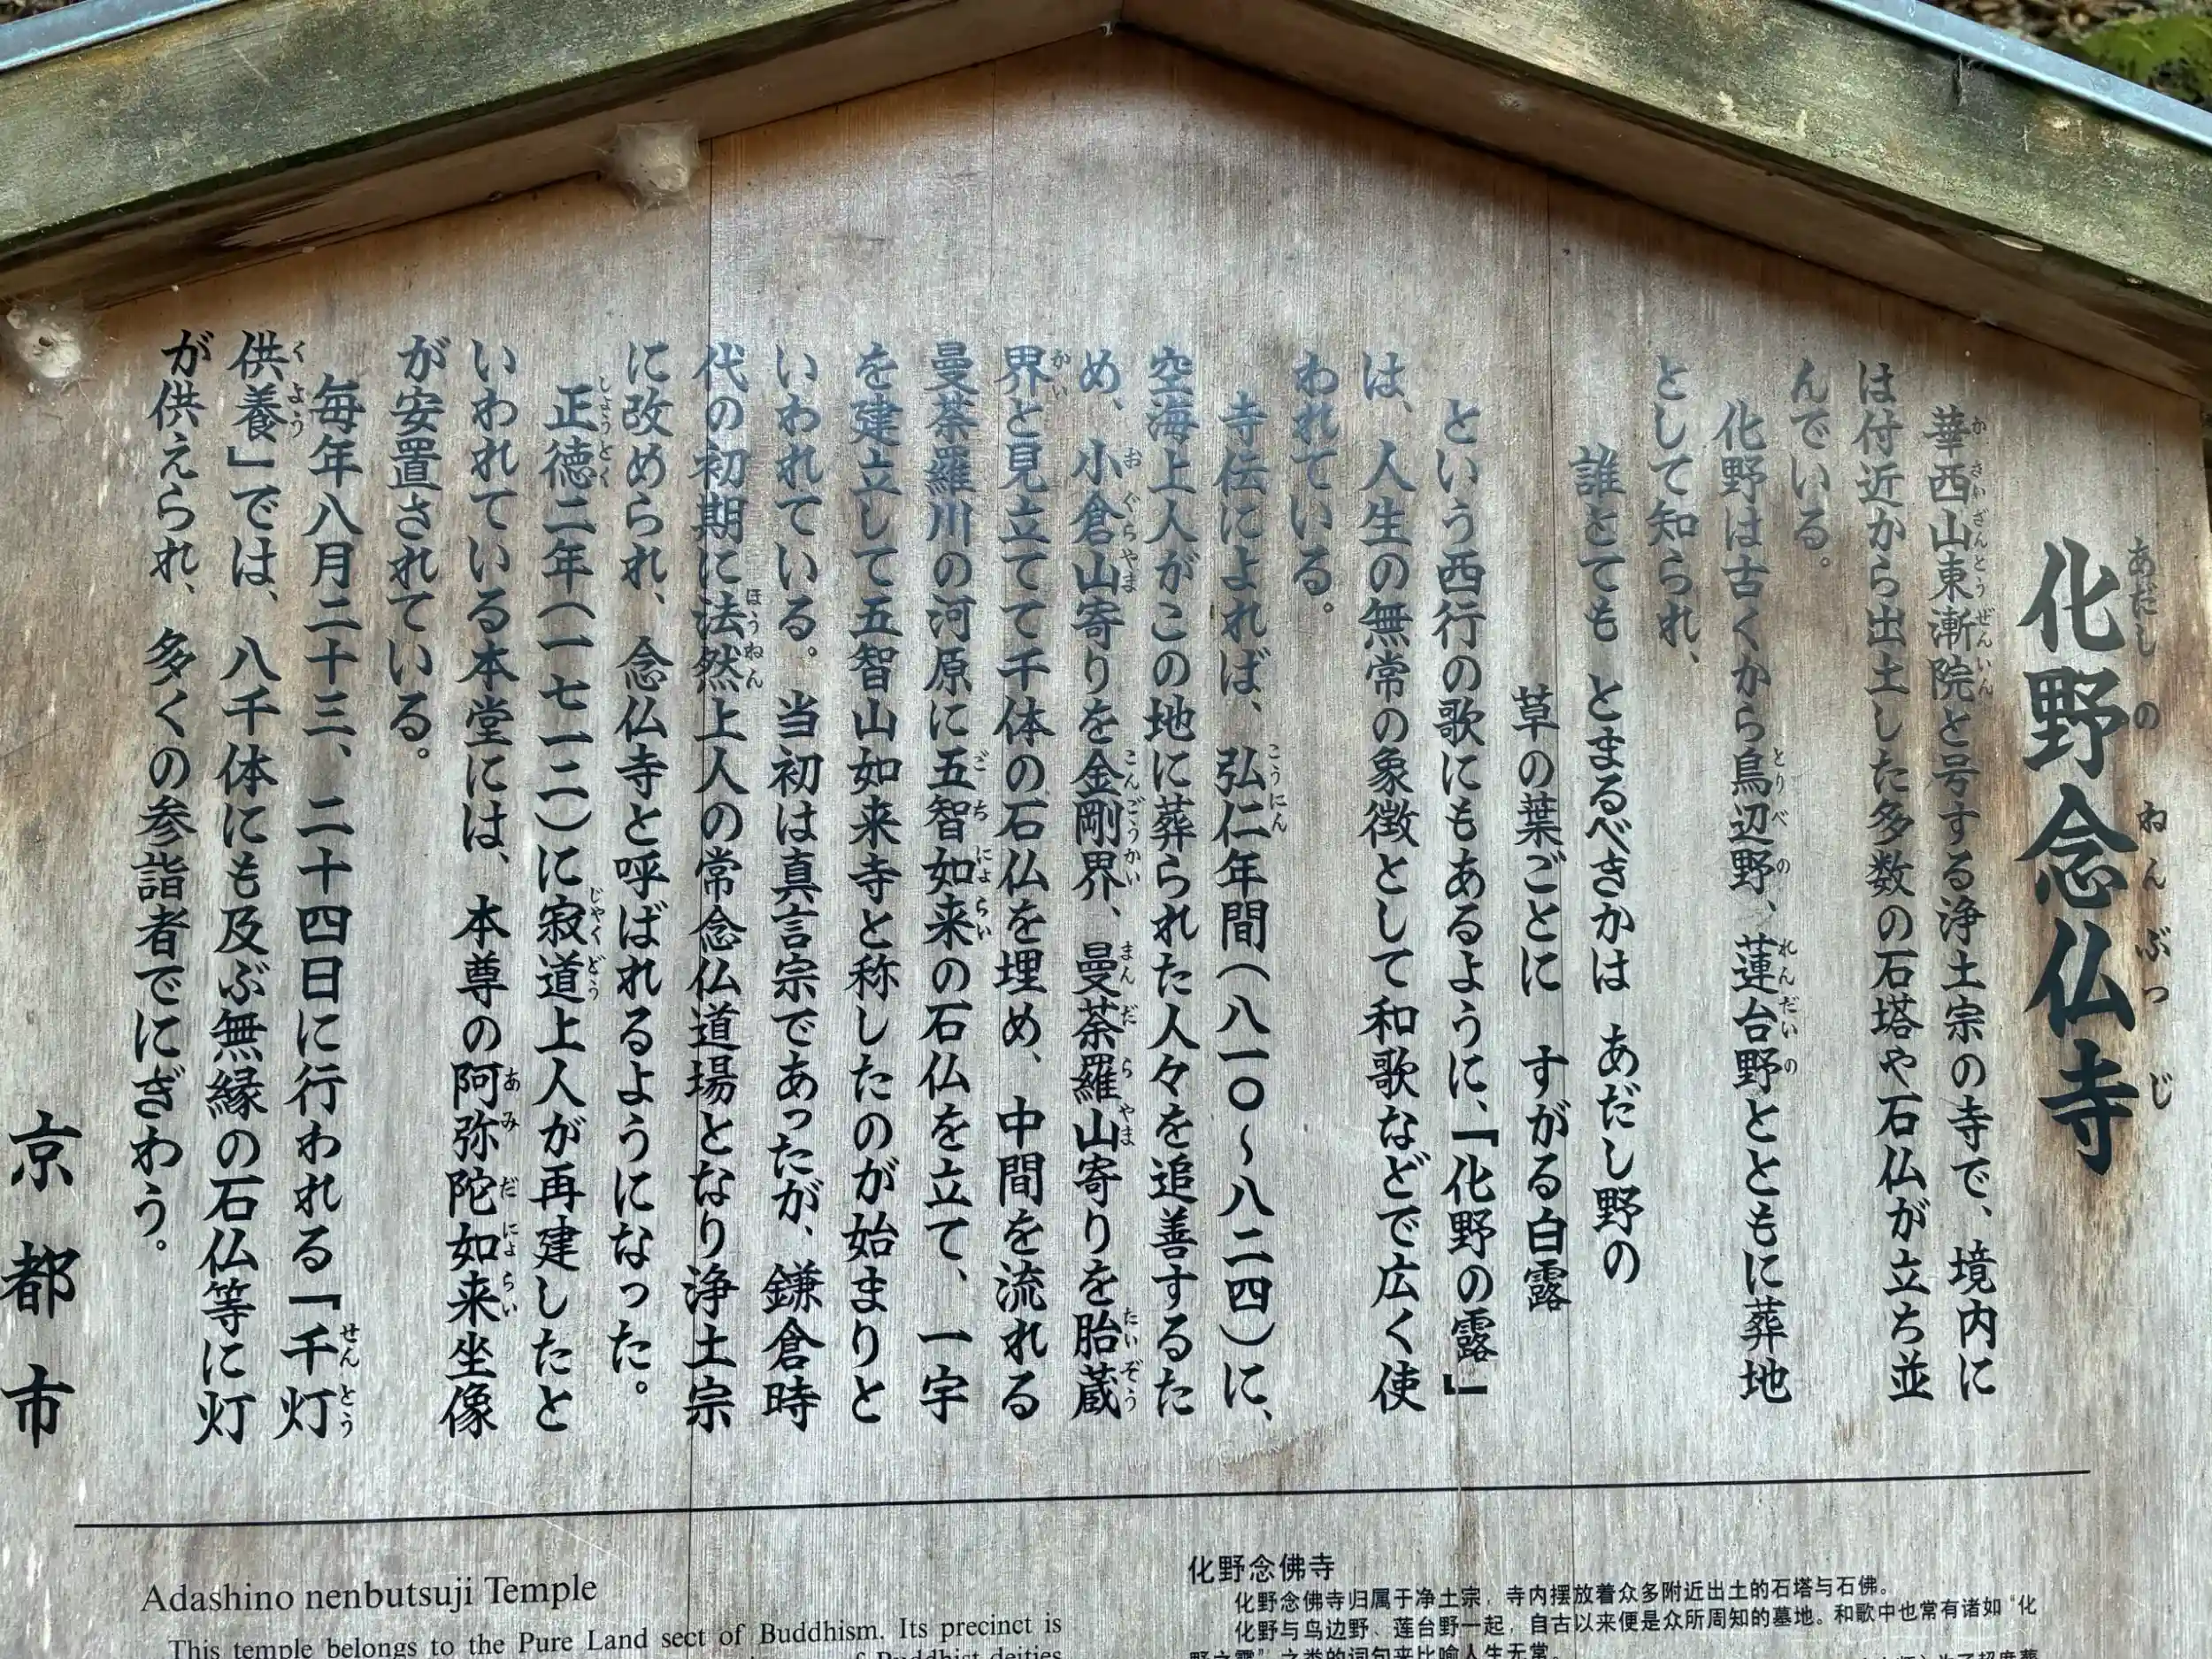 化野念仏寺
あだしのねんぶつじ
華西山東漸院と号する浄土宗の寺で、境内に
かさいざんとうぜんいん
は付近から出土した多数の石塔や石仏が立ち並
んでいる。
化野は古くから鳥辺野、蓮台野とともに葬地
とりべの れんだいの
として知られ、
誰とても とまるべきかは あだし野の
草の葉ごとに すがる白露
という西行の歌にもあるように、「化野の露」
は、人生の無常の象徴として和歌などで広く使
われている。
寺伝によれば、弘仁年間(八一〇~八二四)に、
こうにん
空海上人がこの地に葬られた人々を追善するた
め、小倉山寄りを金剛界、曼荼羅山寄りを胎蔵
おぐらやま こんごうかい まんだらやま たいぞう
界と見立てて千体の石仏を埋め、中間を流れる
かい
曼荼羅川の河原に五智如来の石仏を立て、一宇
ごちにょらい
を建立して五智山如来寺と称したのが始まりと
いわれている。当初は真言宗であったが、鎌倉時
代の初期に法然上人の常念仏道場となり浄土宗
ほうねん
に改められ、念仏寺と呼ばれるようになった。
正徳二年(一七一二)に寂道上人が再建したと
しょうとく じゃくどう
いわれている本堂には、本尊の阿弥陀如来坐像
あみだにょらい
が安置されている。
毎年八月二十三、二十四日に行われる「千灯
せんとう
供養」では、八千体にも及ぶ無縁の石仏等に灯
くよう
が供えられ、多くの参詣者でにぎわう。
京都市
Adashino nenbutsuji Temple
This temple belongs to the Pure Land sect of Buddhism. Its precinct is
of Buddhist deities
化野念佛寺
化野念佛寺归属于净土宗，寺内摆放着众多附近出土的石塔与石佛。
化野与鸟边野、莲台野一起，自古以来便是众所周知的墓地。和歌中也常有诸如“化
野之露”之类的词句来比喻人生无常。